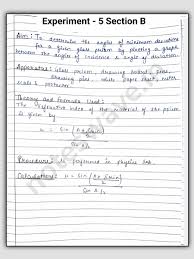 Experiment - 5 Section B
Aim: To determine the angles of minimum deviation
for a given glass prism by plotting a graph
between the angles of incidence & angle of deviation.
Apparatus: glass prism, drawing board, pins,
drawing pins, white paper sheet, meter
scale & protractor.
Theory and Formula Used:
The refractive index of the material of the prism
is given by
u = sin (A + δmin)
2
Sin A/2
Procedure: performed in physics lab
Calculations: u = sin (A + δmin)
2
Sin A/2